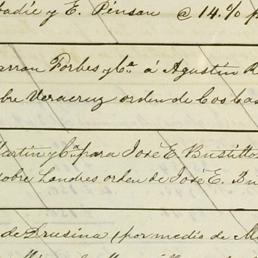 badie y E. Pensan @ 14% p
arron Forbes y Ca. á Agustin R
bre Veracruz orden de Cos Cas
Martin y Ca. para José E. Bustillo
sobre Londres orden de José E. Bu
de Drusina (por medio de M